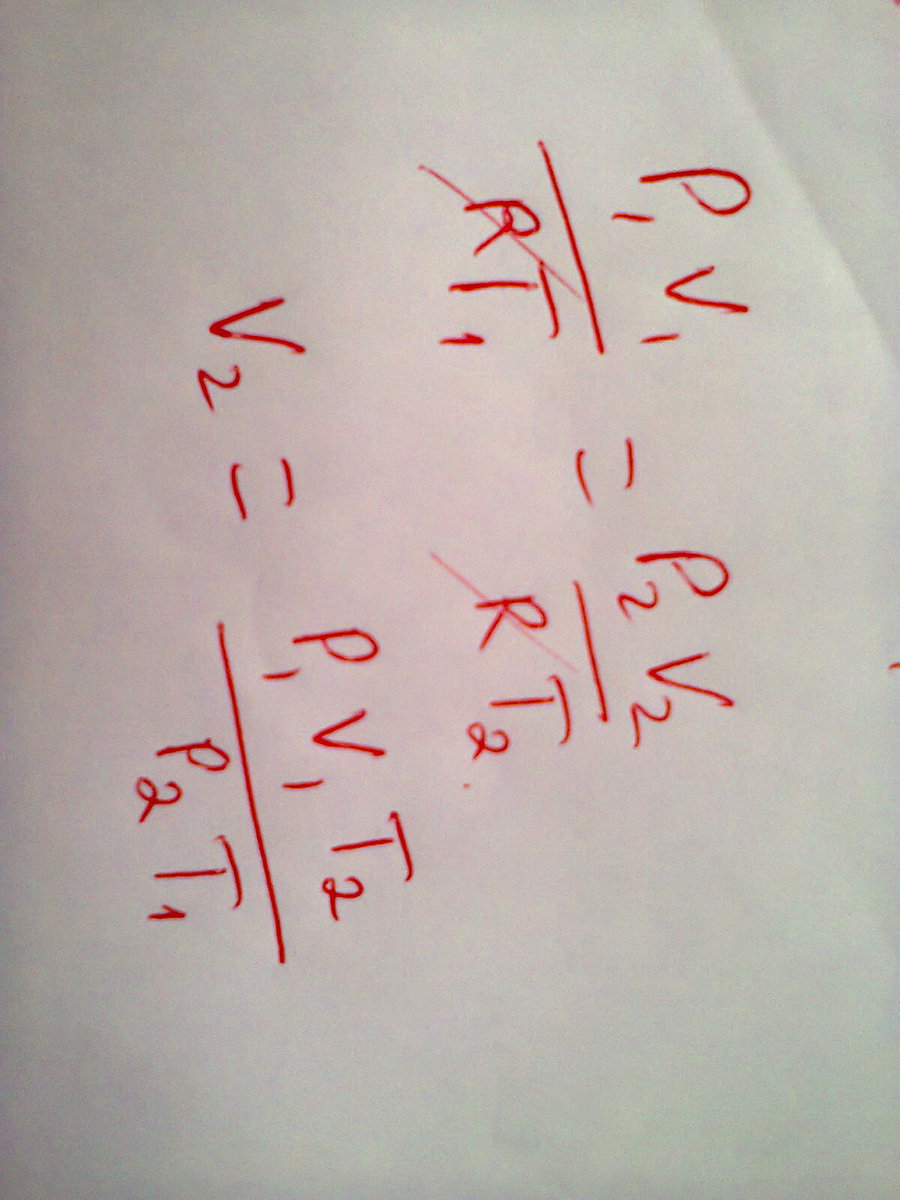 P₁V₁/RT₁ = P₂V₂/RT₂
V₂ = P₁V₁T₂/P₂T₁